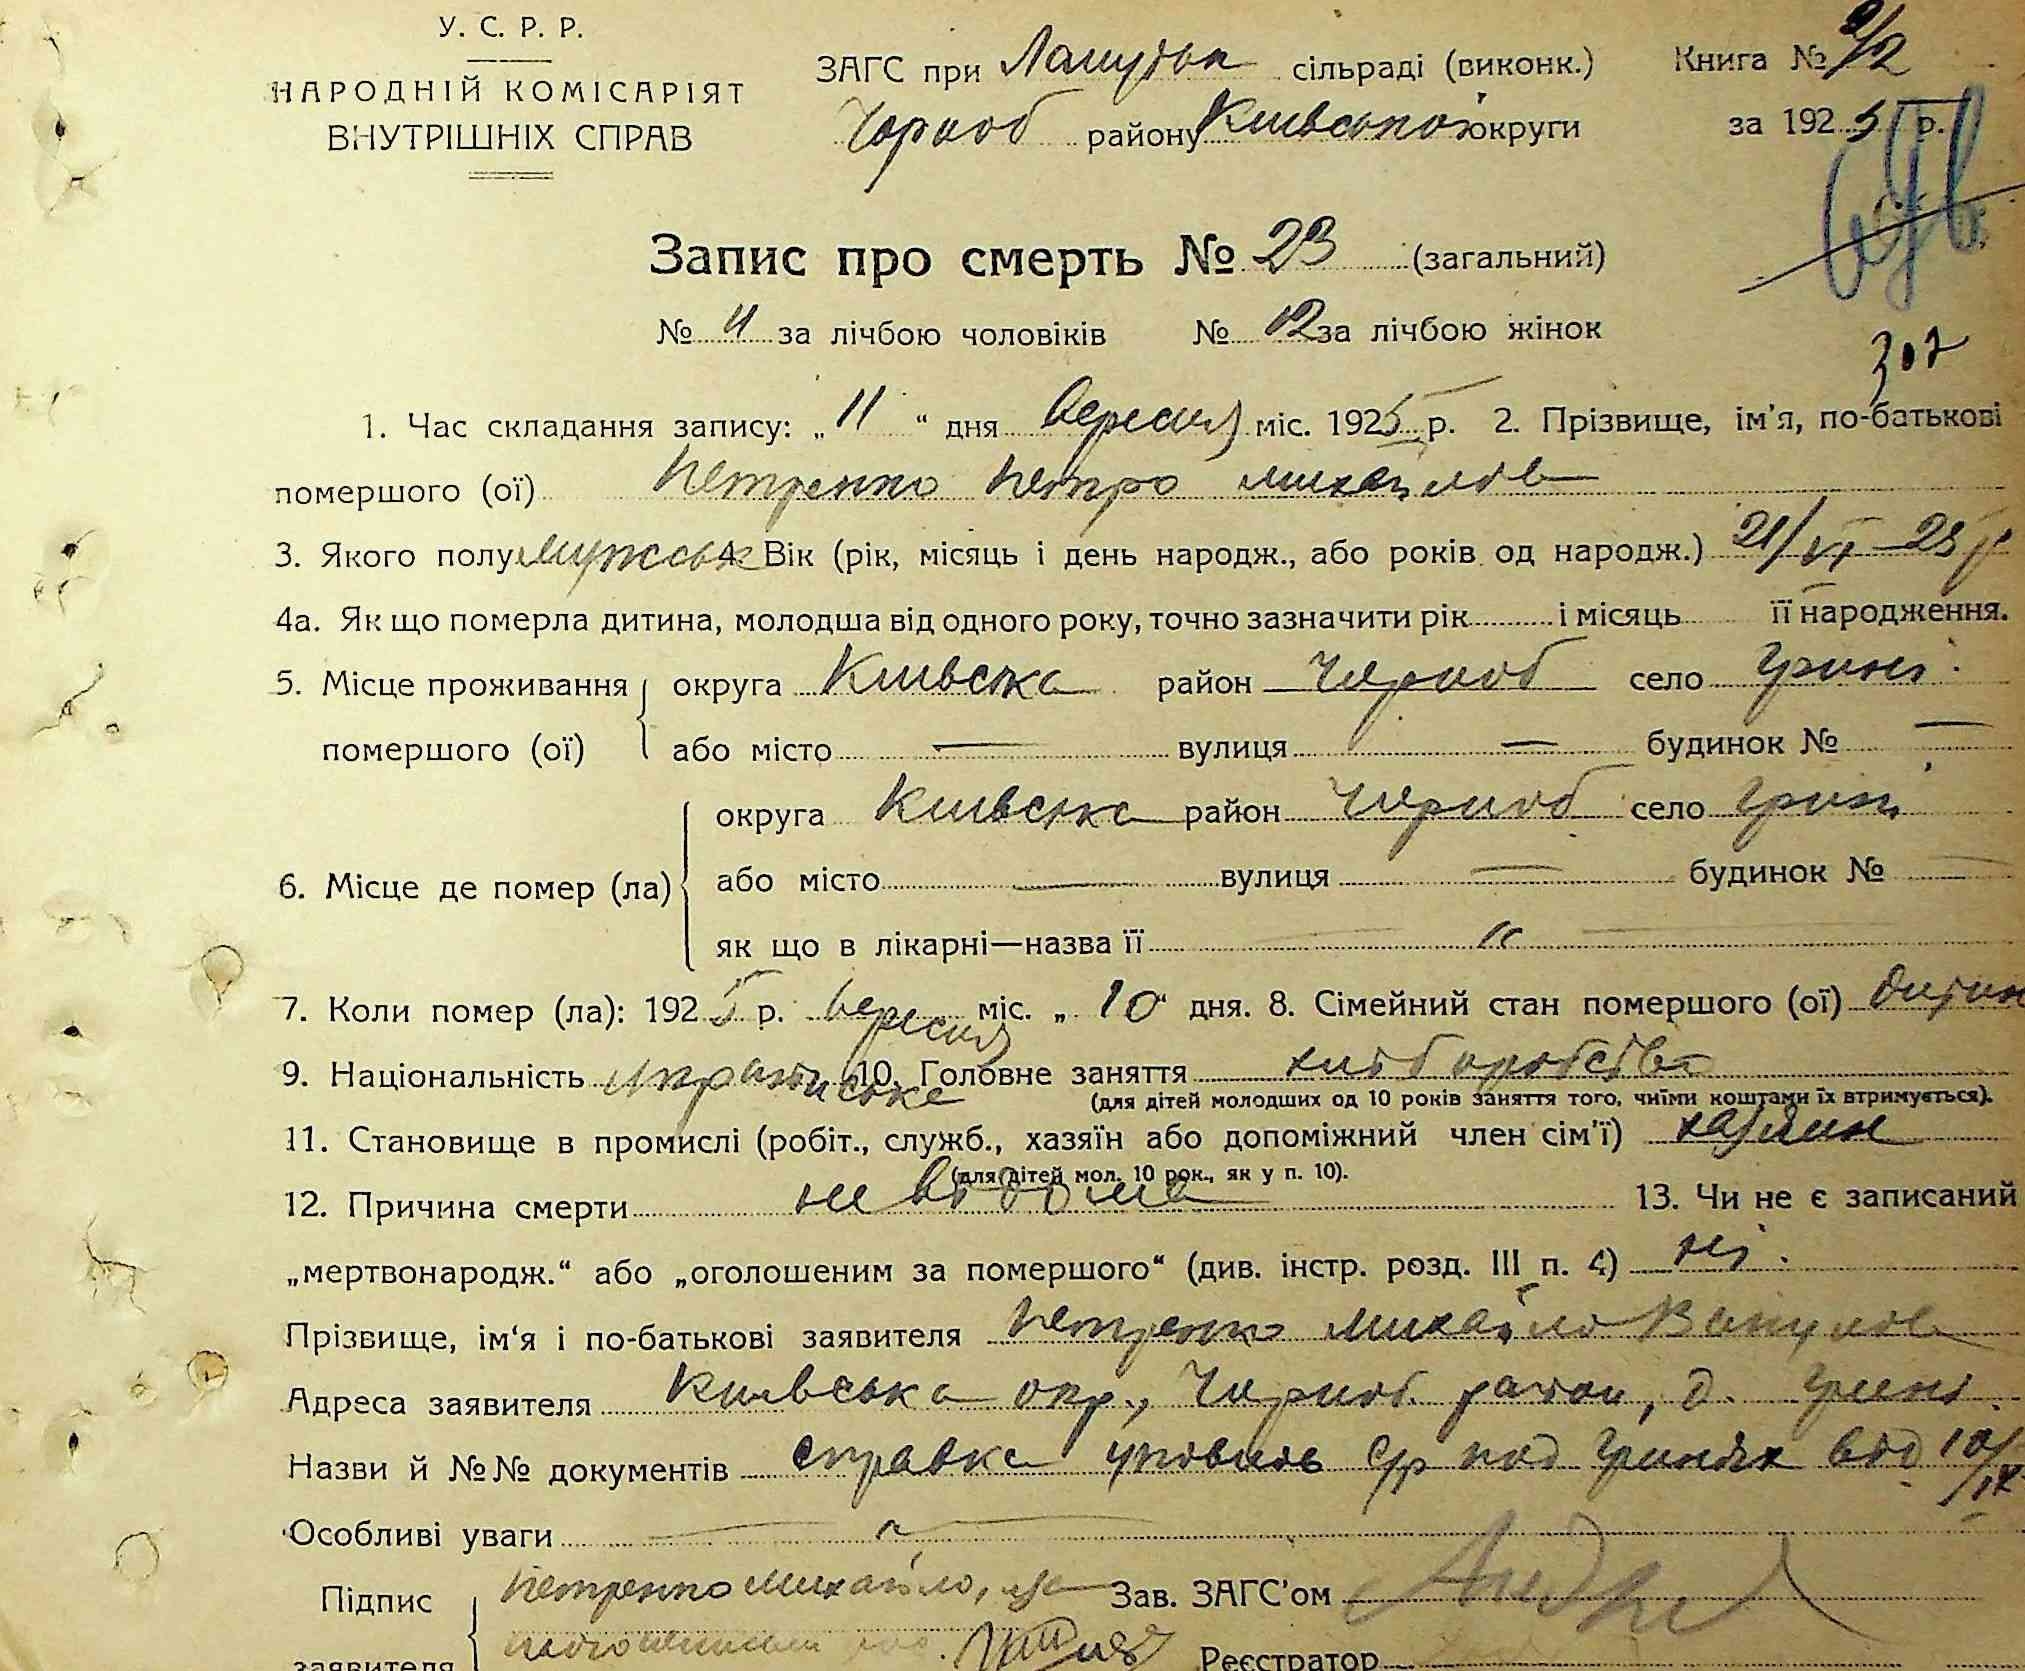 У. С. Р. Р.
НАРОДНІЙ КОМІСАРІЯТ
ВНУТРІШНІХ СПРАВ
ЗАГС при сільраді (виконк.)
Чорноб району Київської округи
Книга № 2/2
за 1925 р.
Запис про смерть № 23 (загальний)
№ 11 за лічбою чоловіків № 12 за лічбою жінок
307
1. Час складання запису: „11“ дня вересня міс. 1925 р. 2. Прізвище, ім'я, по-батькові
помершого (ої) Петренко Петро Михайлов
3. Якого полу мужськ 4. Вік (рік, місяць і день народж., або років од народж.) 21/VI–25 р
4а. Як що померла дитина, молодша від одного року, точно зазначити рік і місяць її народження.
5. Місце проживання помершого (ої) округа Київська район Чорноб село Грині
або місто — вулиця — будинок № —
6. Місце де помер (ла) округа Київська район Чорноб село Грині
або місто — вулиця — будинок № —
як що в лікарні—назва її — „ —
7. Коли помер (ла): 1925 р. вересня міс. „10“ дня. 8. Сімейний стан помершого (ої) дитин
9. Національність українське 10. Головне заняття хліборобство
(для дітей молодших од 10 років заняття того, чиїми коштами їх втримується).
11. Становище в промислі (робіт., служб., хазяїн або допоміжний член сім'ї) хазяин
(для дітей мол. 10 рок., як у п. 10).
12. Причина смерти невідома 13. Чи не є записаний
„мертвонародж.“ або „оголошеним за помершого“ (див. інстр. розд. III п. 4) ні.
Прізвище, ім'я і по-батькові заявителя Петренко Михайло
Адреса заявителя Київська окр., Чорноб. район, д. Грині
Назви й №№ документів справка уповнов с/р под Гринях від 10/IX
Особливі уваги — „ —
Підпис Петренко Михайло, Зав. ЗАГС'ом
заявителя Реєстратор